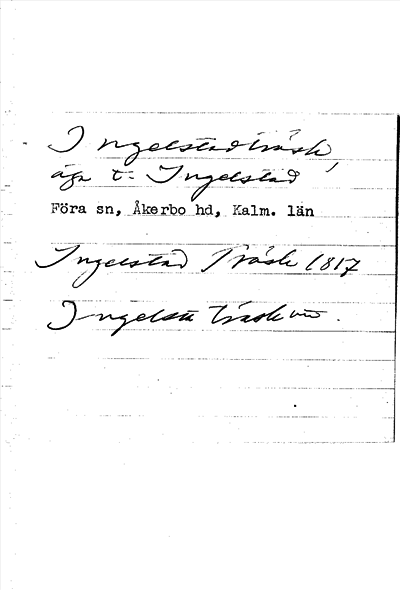 Ingelstadträsk,
äga t: Ingelstad
Föra sn, Åkerbo hd, Kalm. län
Ingelstad Träsk 1817
Ingelsta träsk